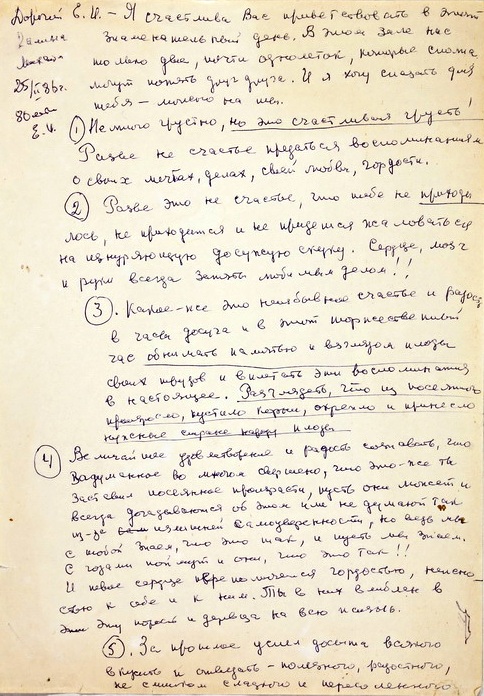 Дорогой Е.И. – Я счастлива Вас приветствовать в этот
Галина знаменательный день. В этом зале нас
только две, почти однолеток, которые
могут понять друг друга. И я хочу сказать для
25/II 86г. тебя – можно на ты.
80 лет
Е.И.
① Немного грустно, но это счастливая грусть!
Разве не счастье предаться воспоминаниям
о своих мечтах, делах, своей любви, гордости.
② Разве это не счастье, что тебе не приходи
лось, не приходится и не придется жаловаться
на изнуряющую досужую скуку. Сердце, мозг
и руки всегда заняты любимым делом!!
③. Какое-же это неизбывное счастье и радость
в часы досуга и в этот торжественный
час обнимать памятью и взглядом плоды
своих трудов и вплетать эти воспоминания
в настоящее. Разглядеть, что из посеянного
проросло, пустило корни, окрепло и принесло
нужные стране плоды
④ Величайшее удовлетворение и радость сознавать, что
Задуманное во многом свершено, что это-же ты
заставил посеянное прорасти, пусть они может и
всегда догадываются об этом или не думают так
из-за излишней самоуверенности, но ведь мы
с тобой знаем, что это так, и пусть мы знаем.
С годами поймут и они, что это так!!
И твое сердце преполнится гордостью,
стью к себе и к ним. Ты в них влюблен в
эту поросль и деревца на всю жизнь.
⑤. За прошлое успел досыта всякого
вкусить и отведать – полезного, радостного,
не слишком сладкого и пересоленного